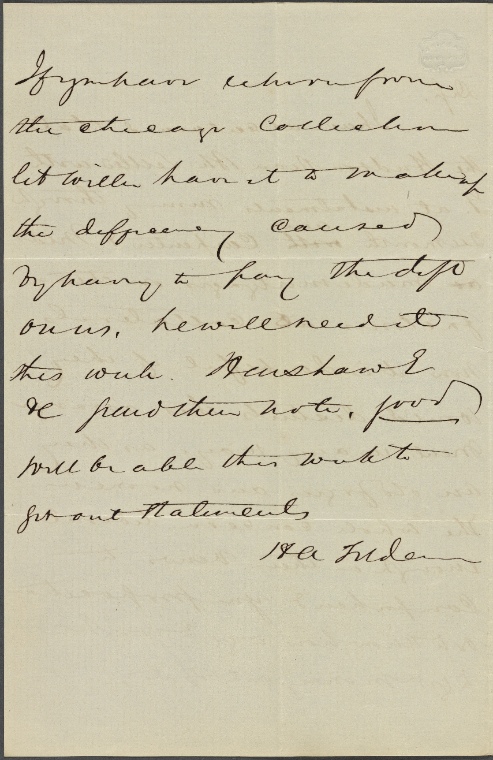 If you have return from
the chicago Collection
let Willen have it to make up
the deffirency caused
by having to pay the dft
on us. he will need it
this week. Henshaw E
&c paid their note. good
will be able this week to
get out Statements
HA Tilden